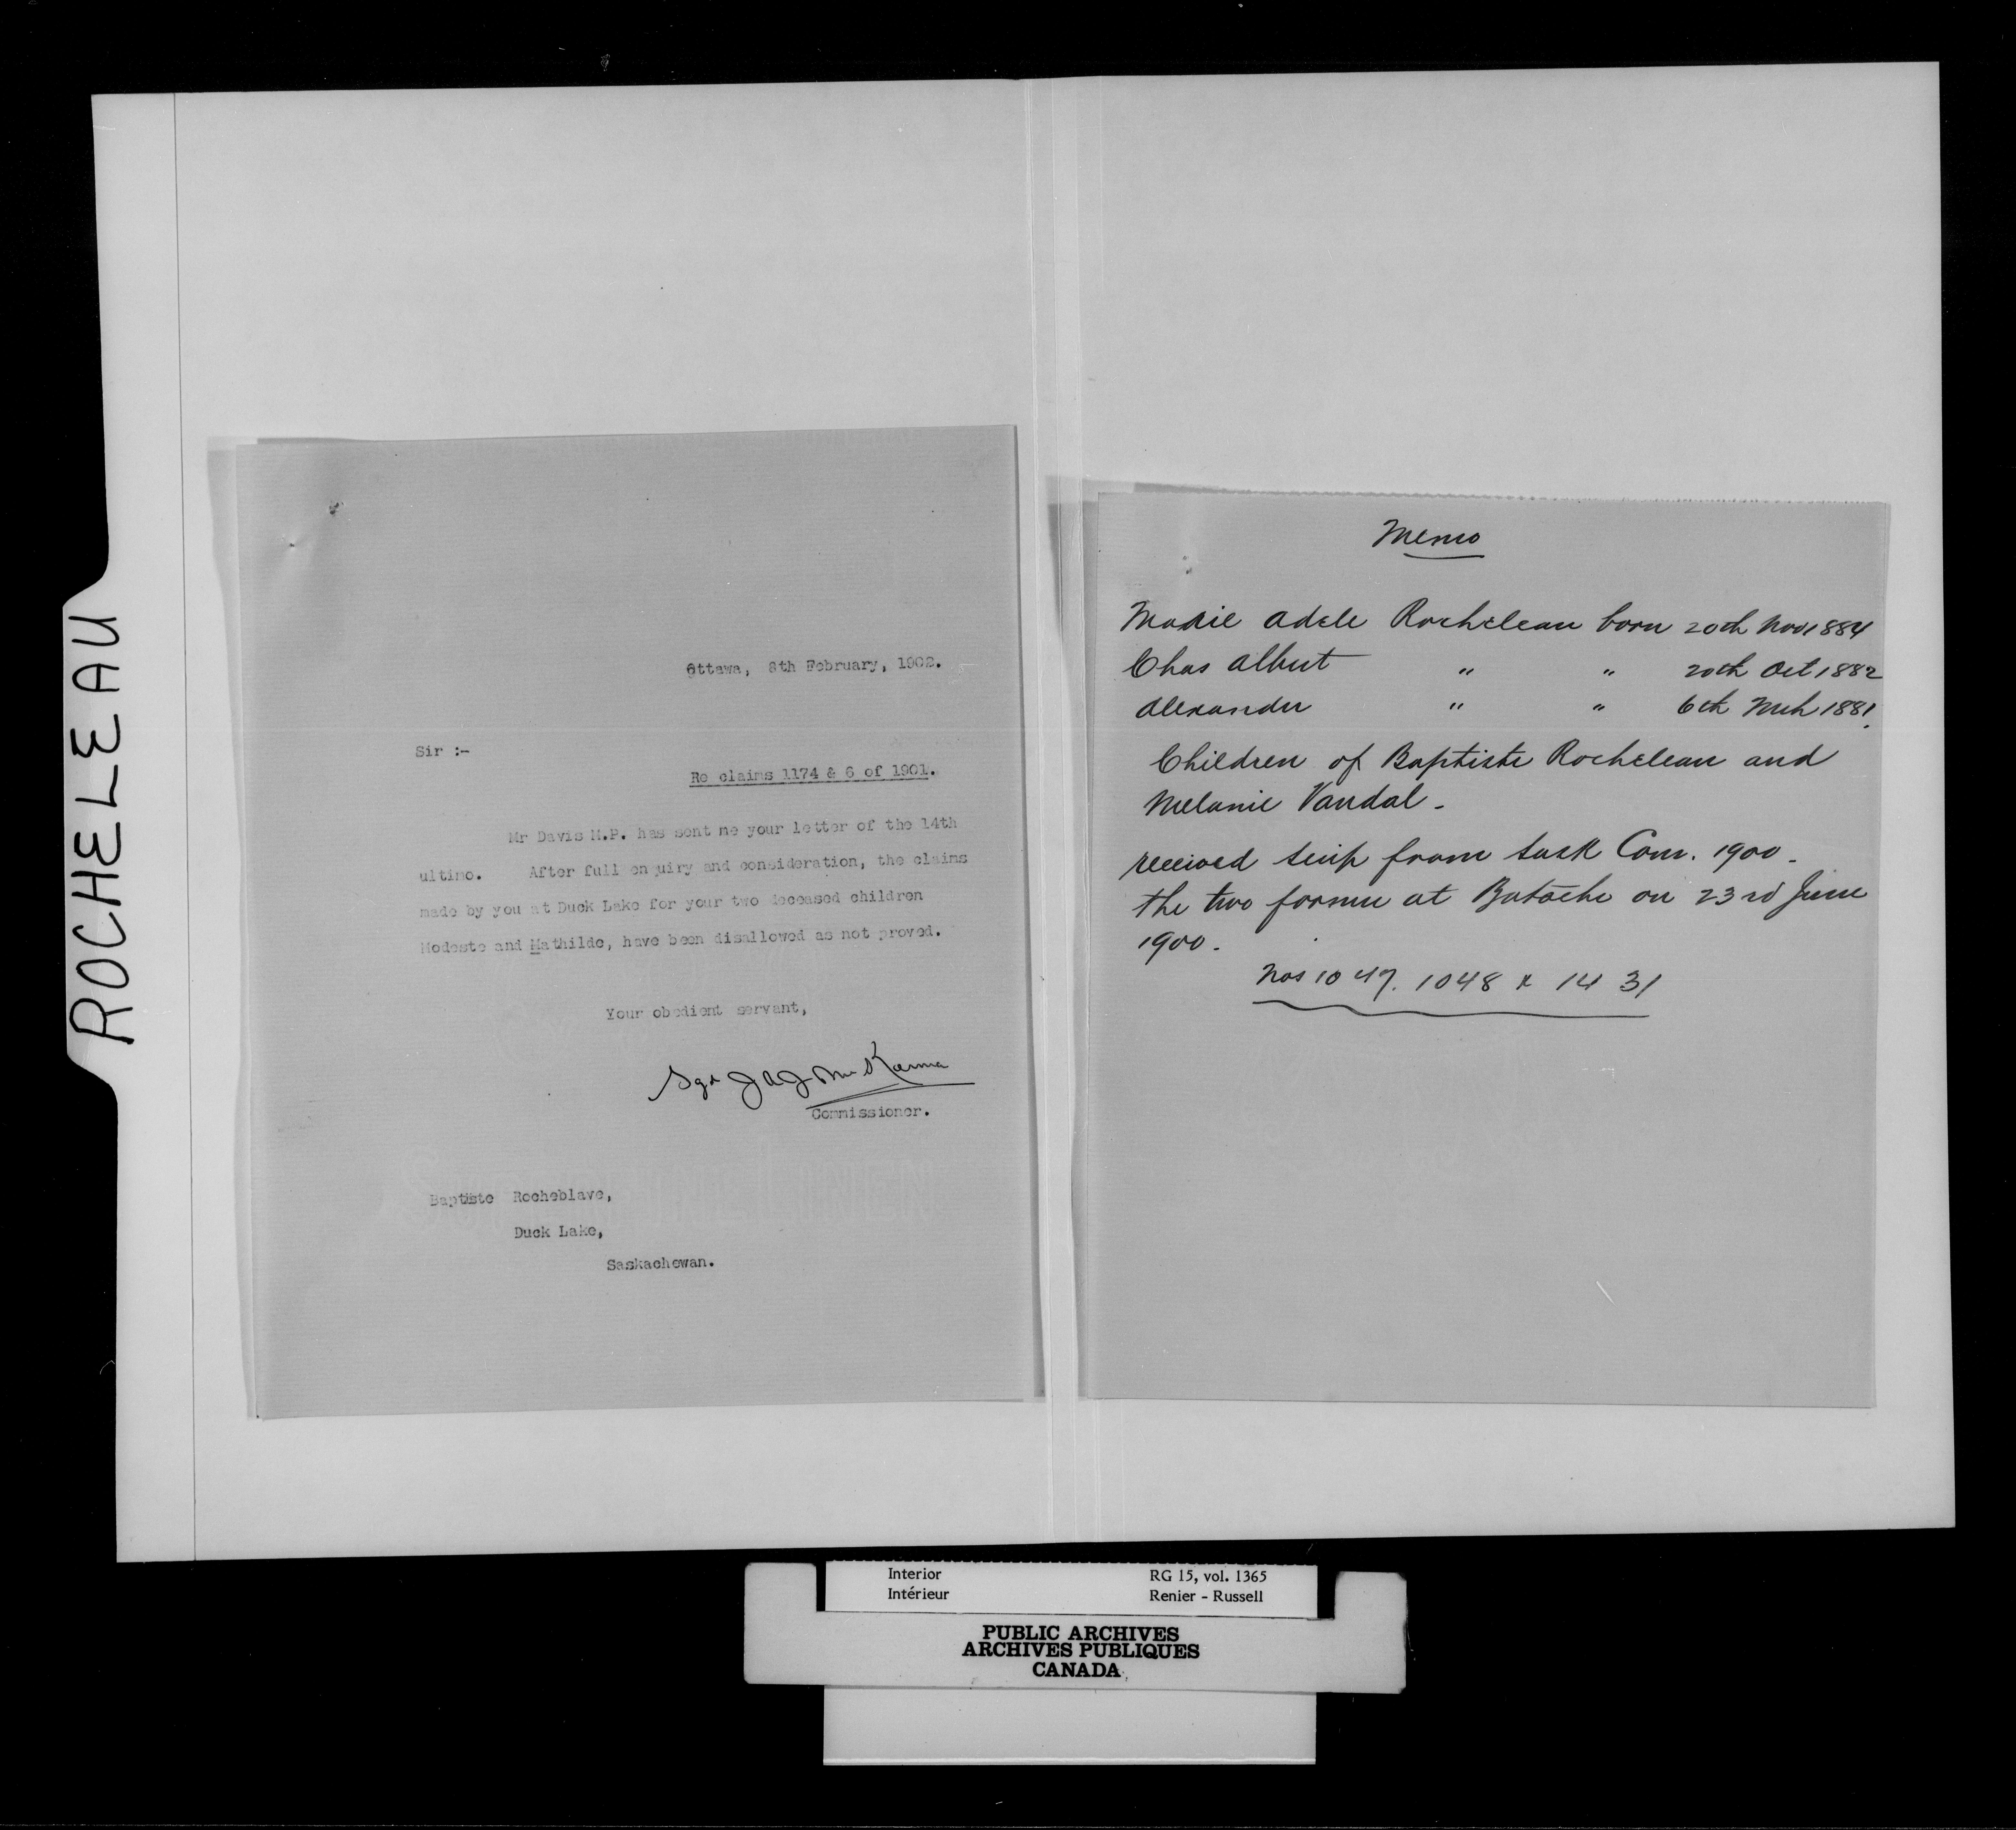 ROCHELEAU
Ottawa, 8th February, 1902.
Sir :-
Re claims 1174 & 6 of 1901.
Mr Davis M.P. has sent me your letter of the 14th
ultimo. After full enquiry and consideration, the claims
made by you at Duck Lake for your two deceased children
Modeste and Mathilde, have been disallowed as not proved.
Your obedient servant,
Sgd J A J McKenna
Commissioner.
Baptiste Rocheblave,
Duck Lake,
Saskachewan.
Memo
Marie Adele Rocheleau born 20th Nov 1884
Chas Albert " " 20th Oct 1882
Alexander " " 6th Mch 1881.
Children of Baptiste Rocheleau and
Melanie Vandal -
received scrip from Sask Com. 1900 -
the two former at Batoche on 23rd June
1900.
Nos 1047. 1048 & 1431
Interior RG 15, vol. 1365
Intérieur Renier - Russell
PUBLIC ARCHIVES
ARCHIVES PUBLIQUES
CANADA